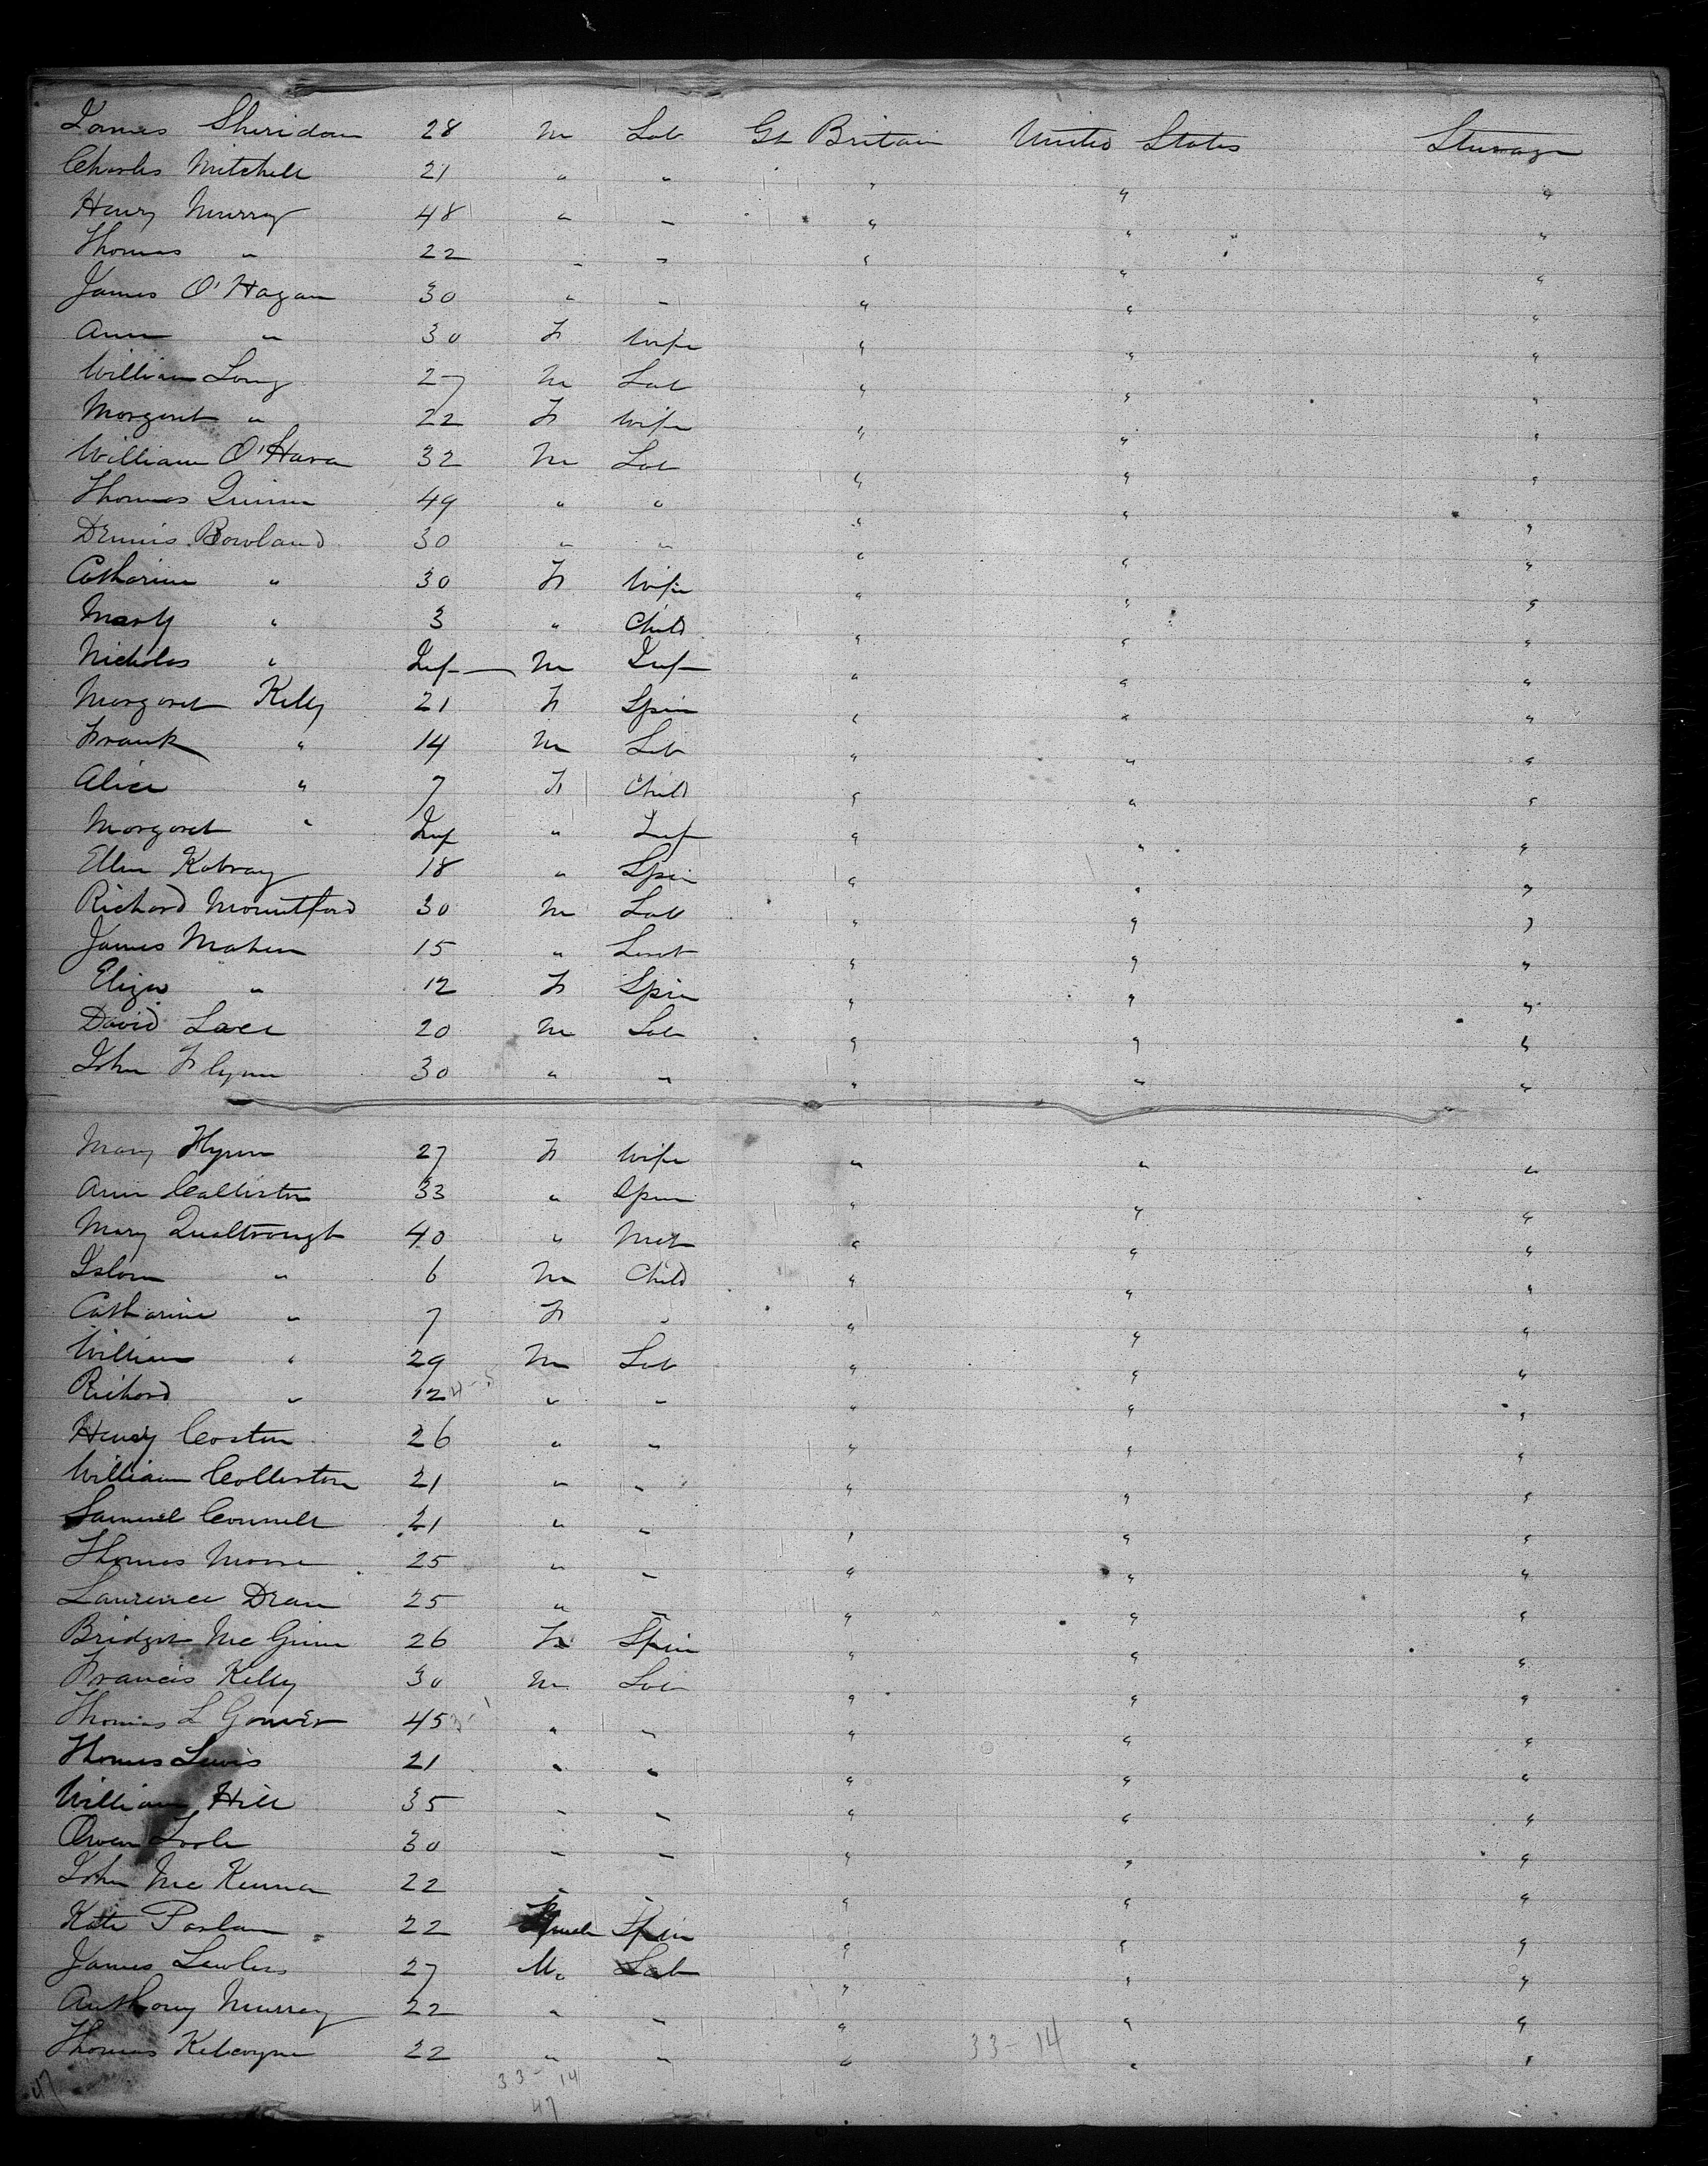 James Sheridan 28 M Lab Gt Britain United States Steerage
Charles Mitchell 21 " " " " "
Henry Murray 48 " " " " "
Thomas " 22 " " " " "
James O'Hagan 30 " " " " "
Ann " 30 F Wife " " "
William Long 27 M Lab " " "
Margaret " 22 F Wife " " "
William O'Hara 32 M Lab " " "
Thomas Quinn 49 " " " " "
Dennis Bowland 30 " " " " "
Catharine " 30 F Wife " " "
Mary " 3 " Child " " "
Nicholas " Inf M Inf " " "
Margaret Kelly 21 F Spin " " "
Frank " 14 M Lab " " "
Alice " 7 F Child " " "
Margaret " Inf " Inf " " "
Ellen 18 " Spin " " "
Richard Mountford 30 M Lab " " "
James Maher 15 " " " "
Eliza " 12 F Spin " " "
David 20 M Lab " " "
John Flynn 30 " " " " "
Mary Flynn 27 F Wife " " "
Ann Callister 33 " Spin " " "
Mary Qualtrough 40 " " " "
" 6 M Child " " "
Catharine " 7 F " " " "
William " 29 M Lab " " "
Richard " 12 " " " " "
Henry 26 " " " " "
William Collister 21 " " " " "
Samuel 21 " " " " "
Thomas Moore 25 " " " " "
Laurence Dean 25 " " " " "
Bridget Mc Ginn 26 F Spin " " "
Francis Kelly 30 M Lab " " "
Thomas L 45 " " " " "
Thomas Lewis 21 " " " " "
William Hill 35 " " " " "
Owen 30 " " " " "
John Mc Kenna 22 " " " " "
Kate 22 Spin " " "
James Lawless 27 M. Lab " " "
Anthony Murray 22 " " " " "
Thomas 22 " " " " "
33-14
33-14
47
47